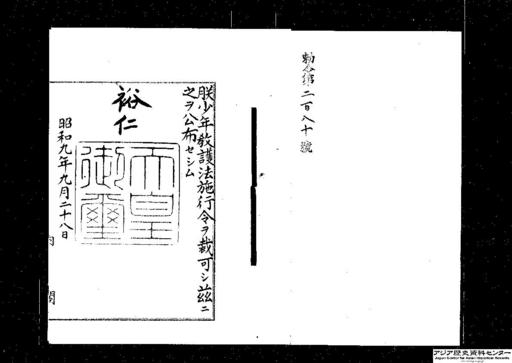 勅令第二百八十號
朕少年教護法施行令ヲ裁可シ茲ニ
之ヲ公布セシム
裕仁
天皇御璽
昭和九年九月二十八日
内閣
アジア歴史資料センター
Japan Center for Asian Historical Records